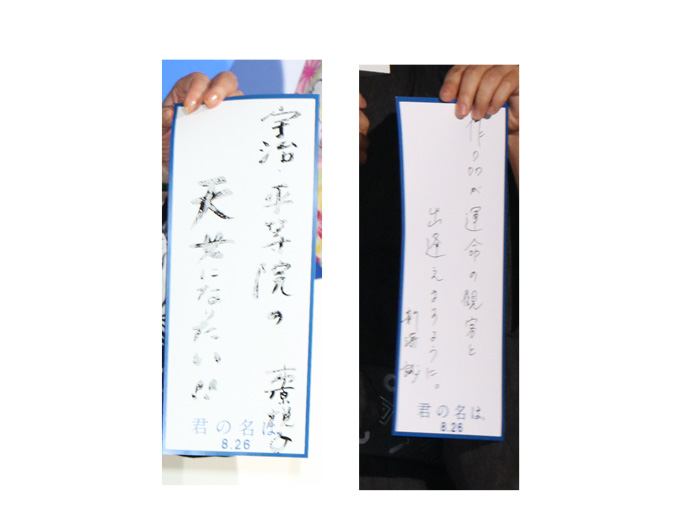 宇治・平等院の
天女になりたい!!
君の名は。
8.26
作品が運命の観客と
出逢えますように。
新海誠
君の名は。
8.26